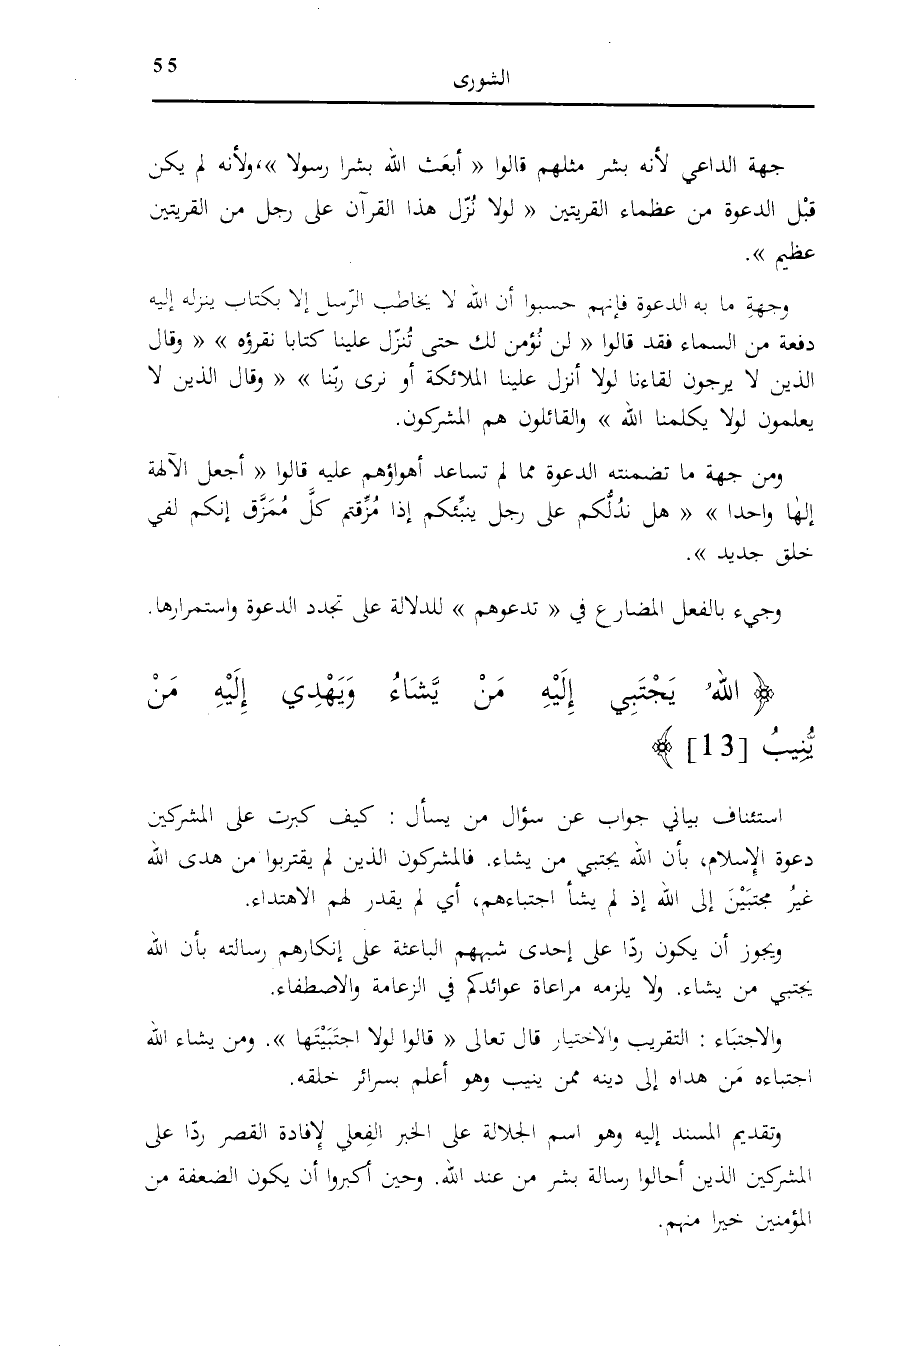 55
الشورى
جهة الداعي لأنه بشر مثلهم قالوا « أبعَث الله بشرا رسولا »، ولأنه لم يكن
قبْل الدعوة من عظماء القريتين « لولا نُزّل هذا القرآن على رجل من القريتين
عظيم ».
وجهةِ ما به الدعوة فإنهم حسبوا أن الله لا يخاطب الرّسل إلا بكتاب ينزله إليه
دفعة من السماء فقد قالوا « لن نُؤمن لك حتى تُنزّل علينا كتابا نقرؤه » « وقال
الذين لا يرجون لقاءنا لولا أنزل علينا الملائكة أو نرى ربّنا » « وقال الذين لا
يعلمون لولا يكلمنا الله » والقائلون هم المشركون.
ومن جهة ما تضمنته الدعوة مما لم تساعد أهواؤهم عليه قالوا « أجعل الآلهة
إلهًا واحدا » « هل ندُلُّكم على رجل ينبِّئكم إذا مُزِّقتم كلَّ مُمَزَّق إنكم لفي
خلق جديد ».
وجيء بالفعل المضارع في « تدعوهم » للدلالة على تجدد الدعوة واستمرارها.
﴿ اللهُ يَجْتَبِي إِلَيْهِ مَنْ يَّشَاءُ وَيَهْدِي إِلَيْهِ مَنْ
يُّنِيبُ [13] ﴾
استئناف بياني جواب عن سؤال من يسأل : كيف كبرت على المشركين
دعوة الإسلام، بأن الله يجتبي من يشاء. فالمشركون الذين لم يقتربوا من هدى الله
غيرُ مجتبَيْنَ إلى الله إذ لم يشأ اجتباءهم، أي لم يقدر لهم الاهتداء.
ويجوز أن يكون ردّا على إحدى شبههم الباعثة على إنكارهم رسالته بأن الله
يجتبي من يشاء. ولا يلزمه مراعاة عوائدكم في الزعامة والاصطفاء.
والاجتبَاء : التقريب والاختيار قال تعالى « قالوا لولا اجتَبَيْتَها ». ومن يشاء الله
اجتباءه مَن هداه إلى دينه ممن ينيب وهو أعلم بسرائر خلقه.
وتقديم المسند إليه وهو اسم الجلالة على الخبر الفِعلي لإفادة القصر ردّا على
المشركين الذين أحالوا رسالة بشر من عند الله. وحين أكبروا أن يكون الضعفة من
المؤمنين خيرا منهم.